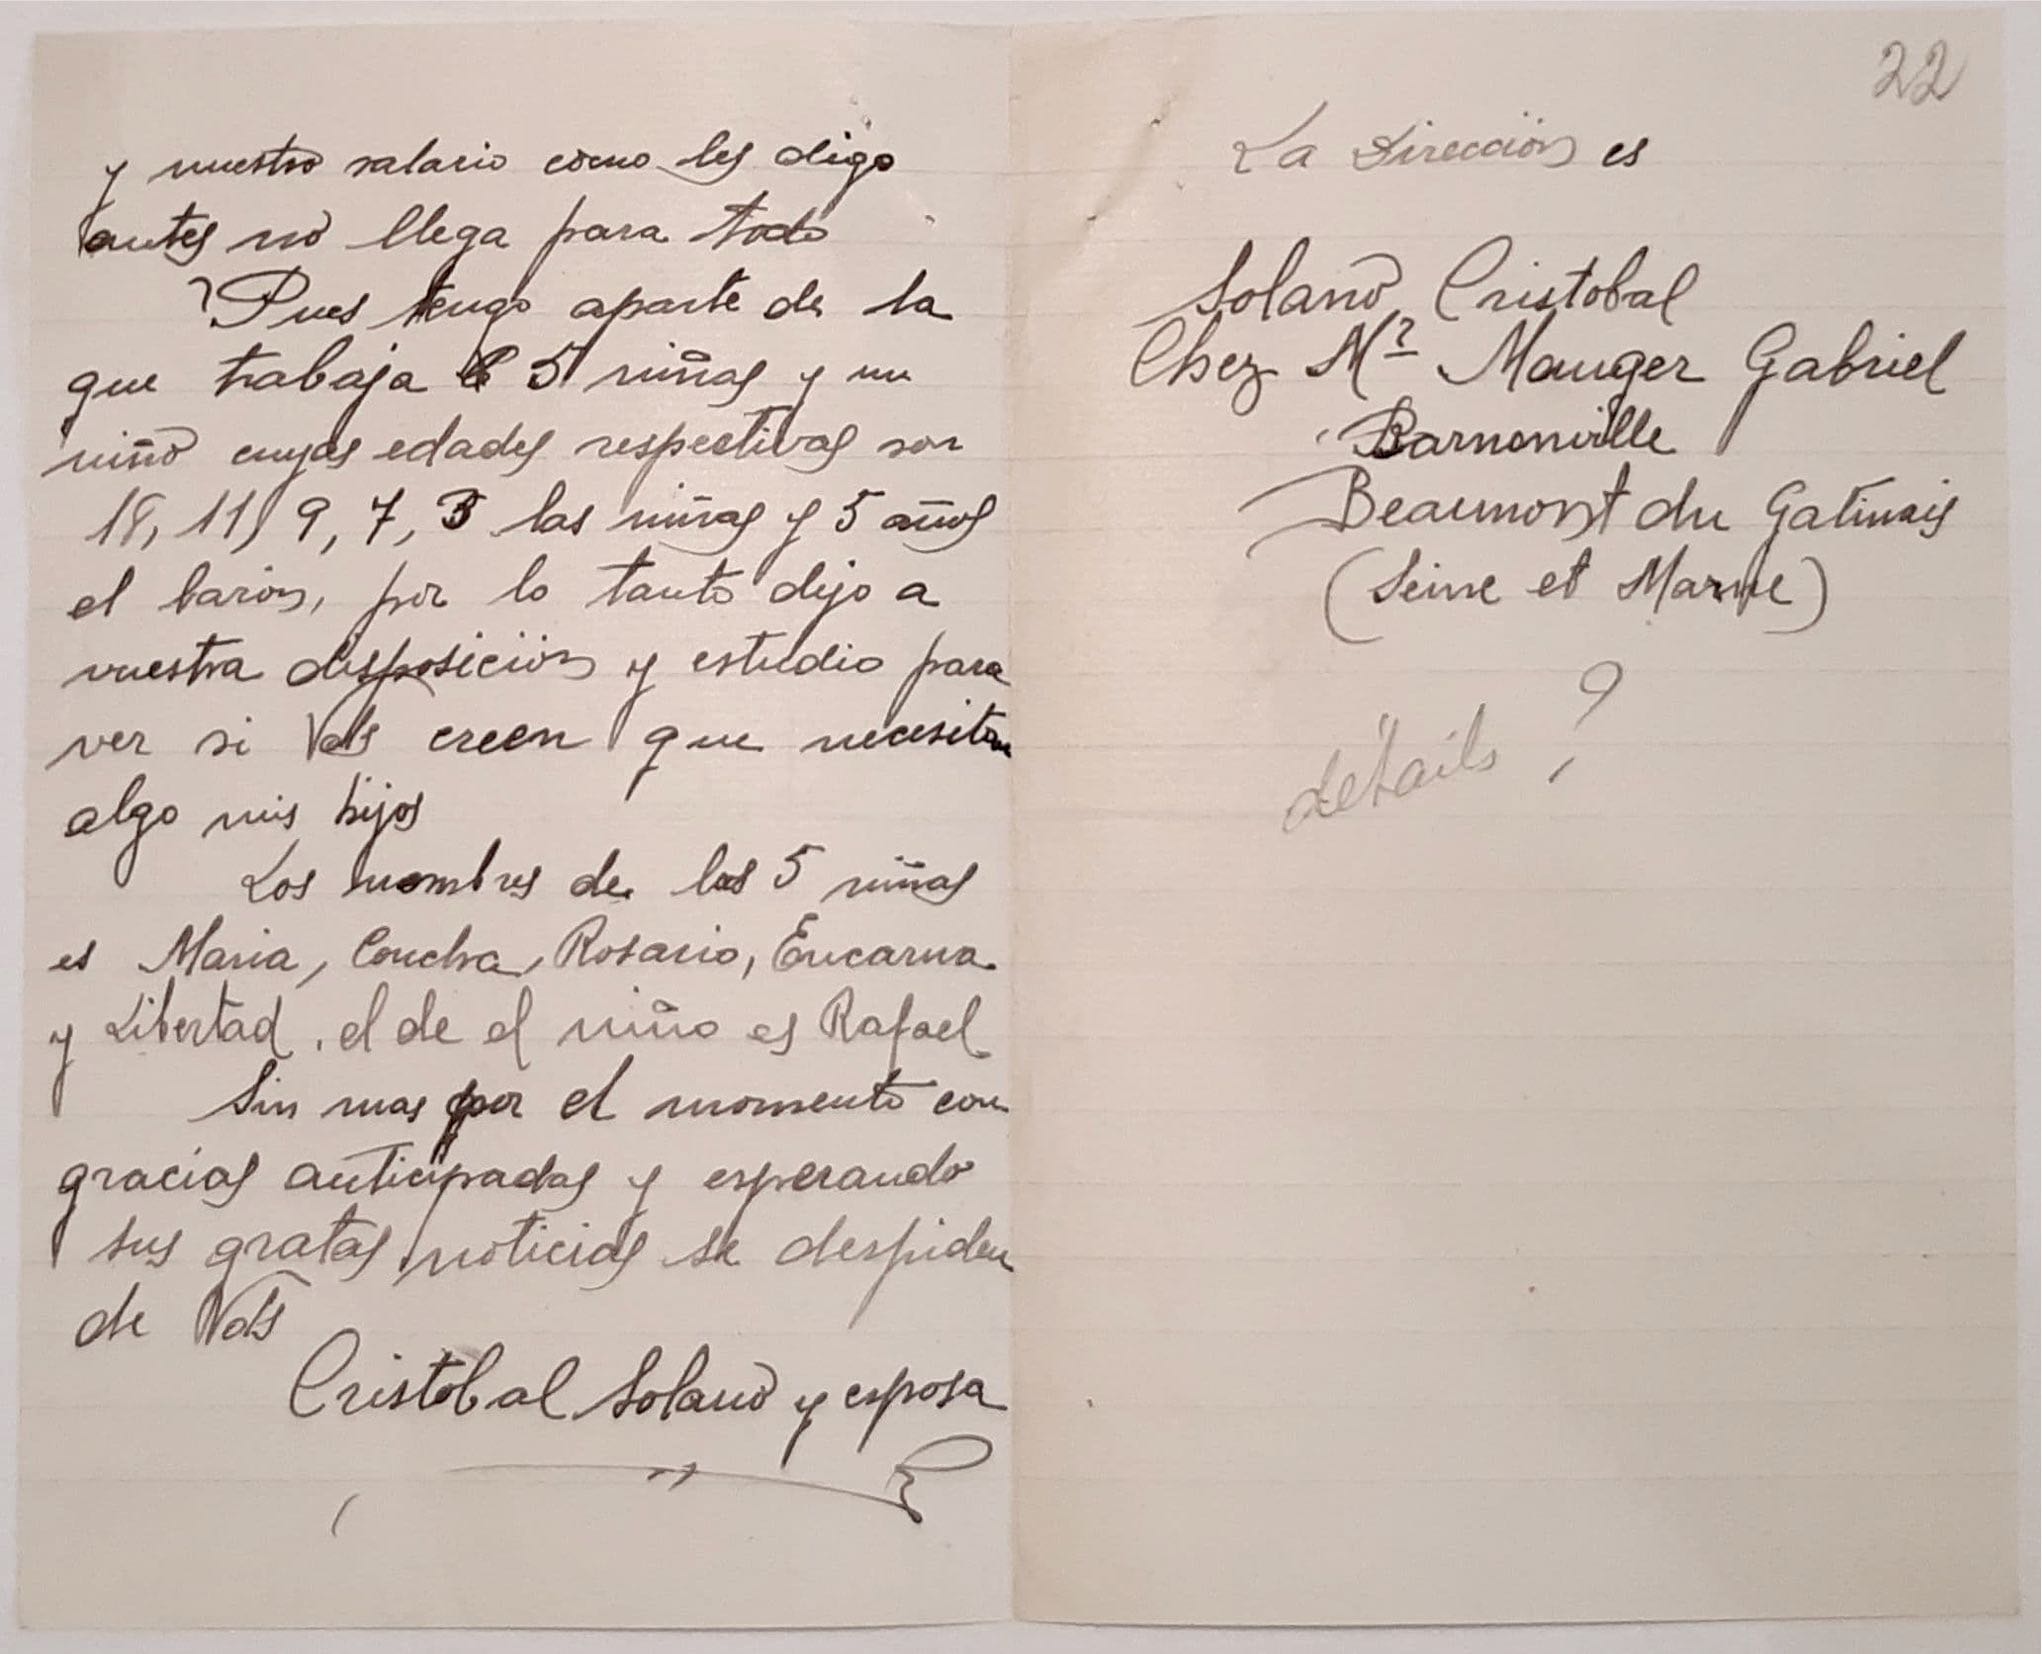 y nuestro salario como les digo
antes no llega para todo
Pues tengo aparte de la
que trabaja 5 niñas y un
niño cuyas edades respectivas son
18, 11, 9, 7, 3 las niñas y 5 años
el baron, por lo tanto dejo a
vuestra disposición y estudio para
ver si Vds creen que necesitan
algo mis hijos
Los nombres de las 5 niñas
es Maria, Concha, Rosario, Encarna
y Libertad. el de el niño es Rafael
Sin mas por el momento con
gracias anticipadas y esperando
sus gratas noticias se despiden
de Vds
Cristobal Solano y esposa
22
La Dirección es
Solano Cristobal
Chez Mr Mauger Gabriel
Barnonville
Beaumont du Gatinais
(Seine et Marne)
détails ?